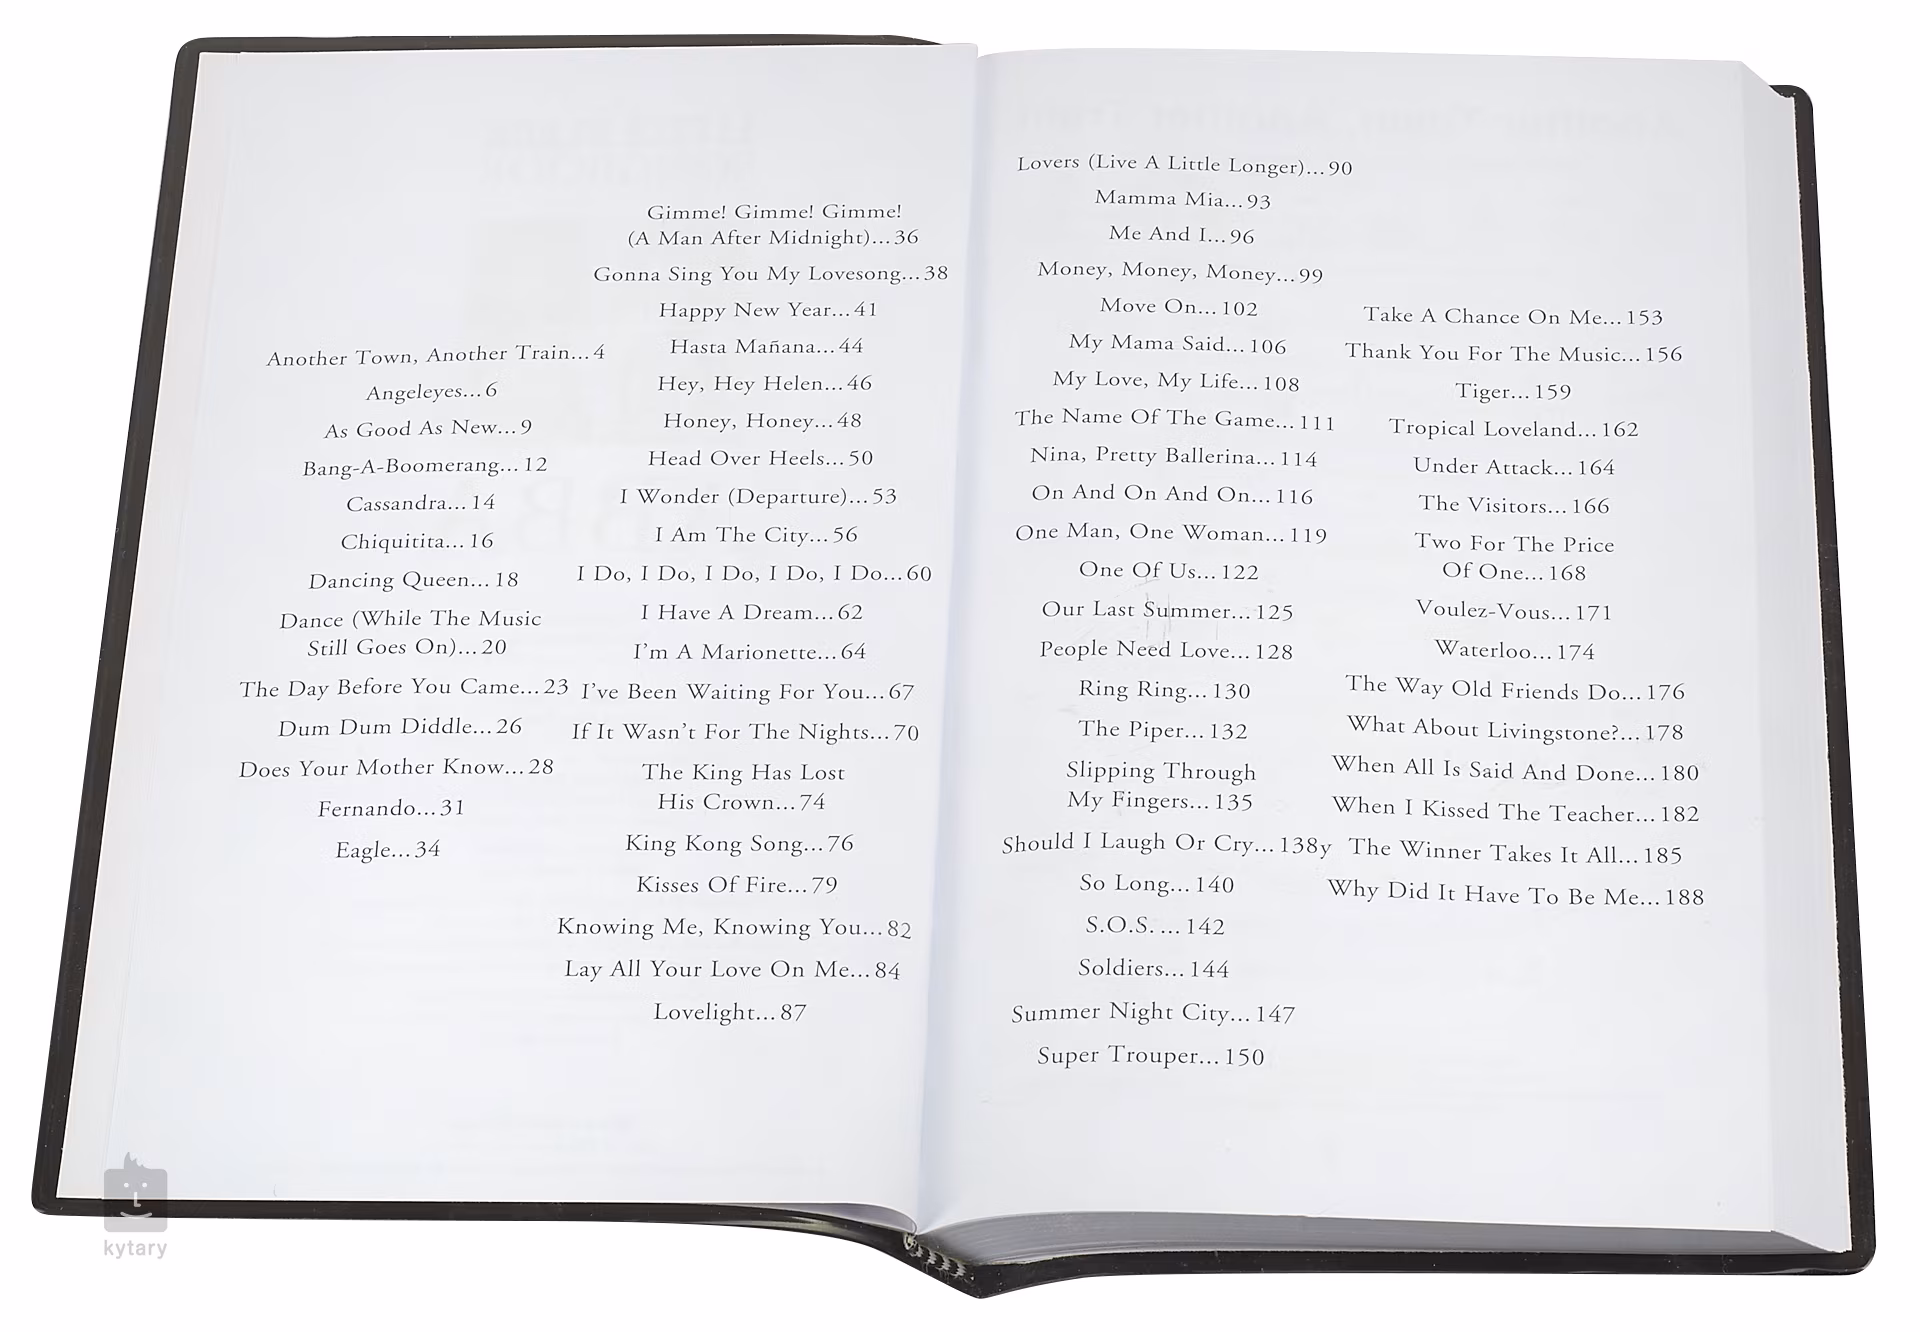 Another Town, Another Train...4
Angeleyes...6
As Good As New...9
Bang-A-Boomerang...12
Cassandra...14
Chiquitita...16
Dancing Queen...18
Dance (While The Music
Still Goes On)...20
The Day Before You Came...23
Dum Dum Diddle...26
Does Your Mother Know...28
Fernando...31
Eagle...34
Gimme! Gimme! Gimme!
(A Man After Midnight)...36
Gonna Sing You My Lovesong...38
Happy New Year...41
Hasta Mañana...44
Hey, Hey Helen...46
Honey, Honey...48
Head Over Heels...50
I Wonder (Departure)...53
I Am The City...56
I Do, I Do, I Do, I Do, I Do...60
I Have A Dream...62
I'm A Marionette...64
I've Been Waiting For You...67
If It Wasn't For The Nights...70
The King Has Lost
His Crown...74
King Kong Song...76
Kisses Of Fire...79
Knowing Me, Knowing You...82
Lay All Your Love On Me...84
Lovelight...87
Lovers (Live A Little Longer)...90
Mamma Mia...93
Me And I...96
Money, Money, Money...99
Move On...102
My Mama Said...106
My Love, My Life...108
The Name Of The Game...111
Nina, Pretty Ballerina...114
On And On And On...116
One Man, One Woman...119
One Of Us...122
Our Last Summer...125
People Need Love...128
Ring Ring...130
The Piper...132
Slipping Through
My Fingers...135
Should I Laugh Or Cry...138y
So Long...140
S.O.S....142
Soldiers...144
Summer Night City...147
Super Trouper...150
Take A Chance On Me...153
Thank You For The Music...156
Tiger...159
Tropical Loveland...162
Under Attack...164
The Visitors...166
Two For The Price
Of One...168
Voulez-Vous...171
Waterloo...174
The Way Old Friends Do...176
What About Livingstone?...178
When All Is Said And Done...180
When I Kissed The Teacher...182
The Winner Takes It All...185
Why Did It Have To Be Me...188
kytary